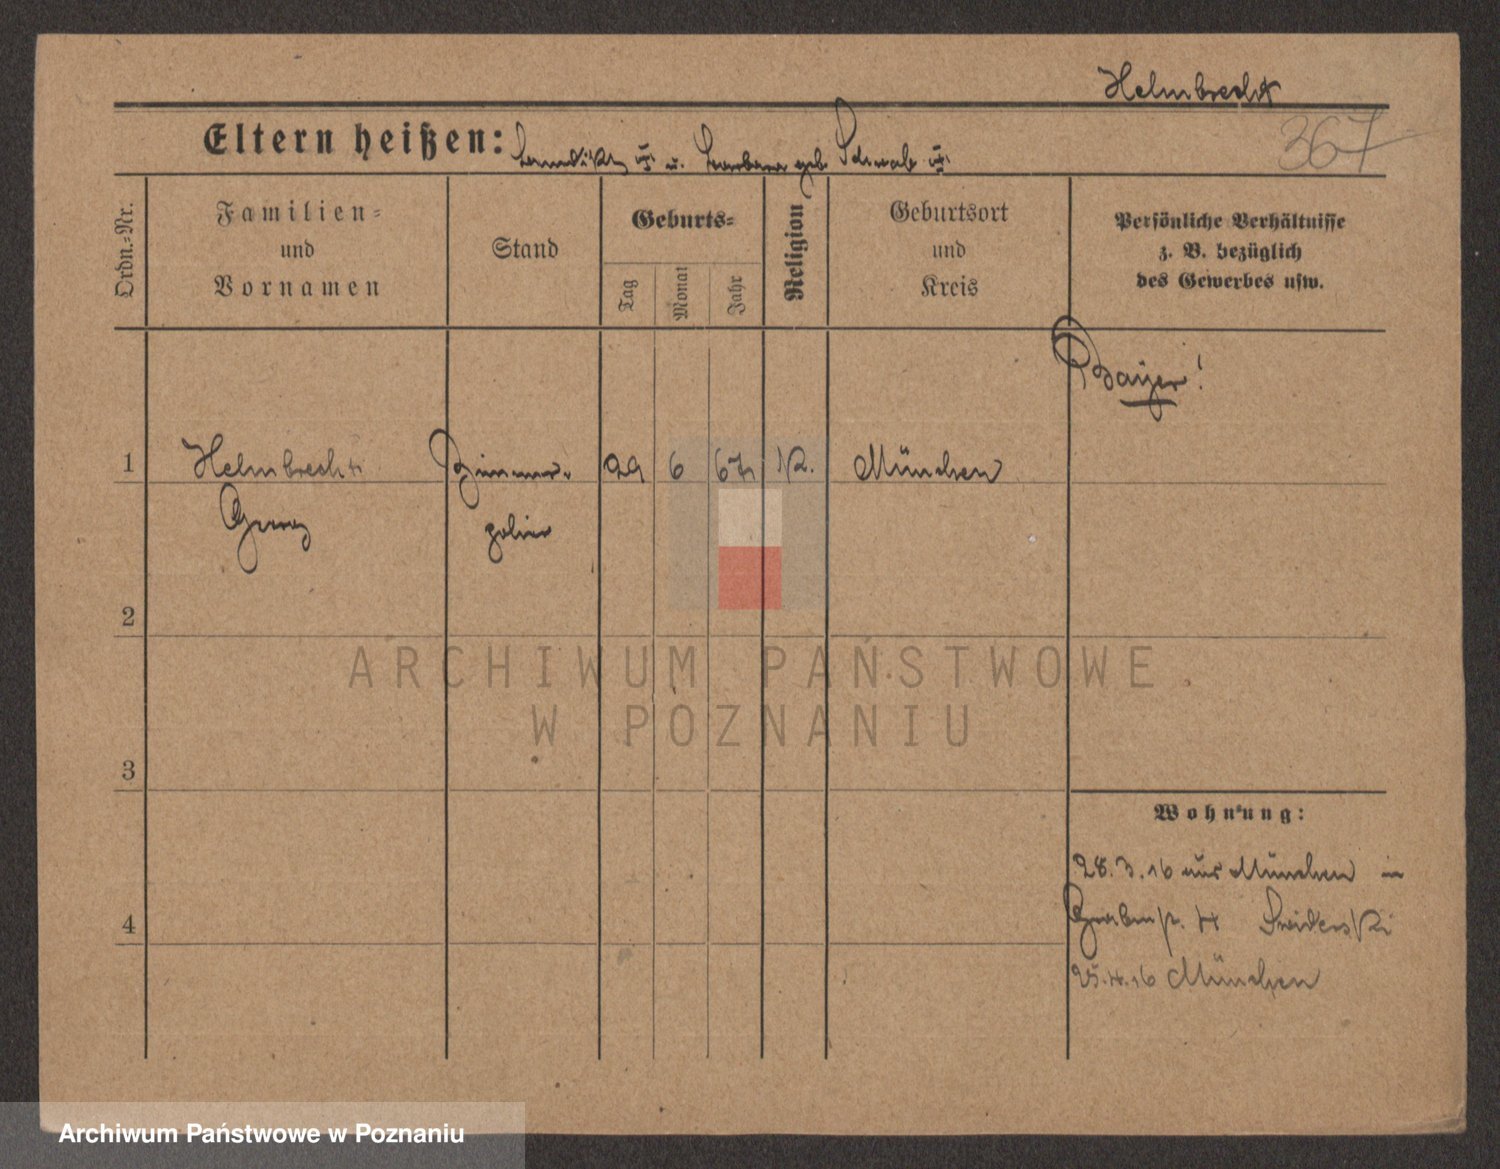 Helmbrecht
367
Eltern heißen: u. Barbara geb. Schwab
Ordn.-Nr.
Familien-
und
Vornamen
Stand
Geburts-
Tag
Monat
Jahr
Religion
Geburtsort
und
Kreis
Persönliche Verhältnisse
z. B. bezüglich
des Gewerbes usw.
Bayer!
1 Helmbrecht Zimmer- 29 6 67 K. München
Georg polier
2
ARCHIWUM PAŃSTWOWE
W POZNANIU
3
Wohnung:
28.3.16 aus München in
4 Grabenstr. 4 Swiderski
25.4.16 München
Archiwum Państwowe w Poznaniu